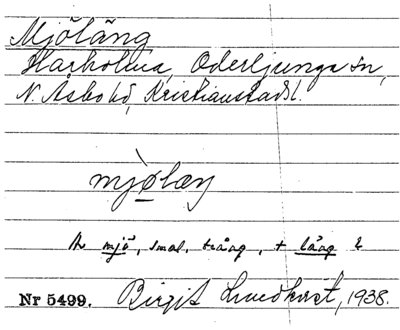 Mjölång
Harholma, Oderljunga sn,
N. Åsbo hd, Kristianstads l.
mjölæŋ
mjö, smal, trång, + lång
Nr 5499. Birgit Lundkvist, 1938.